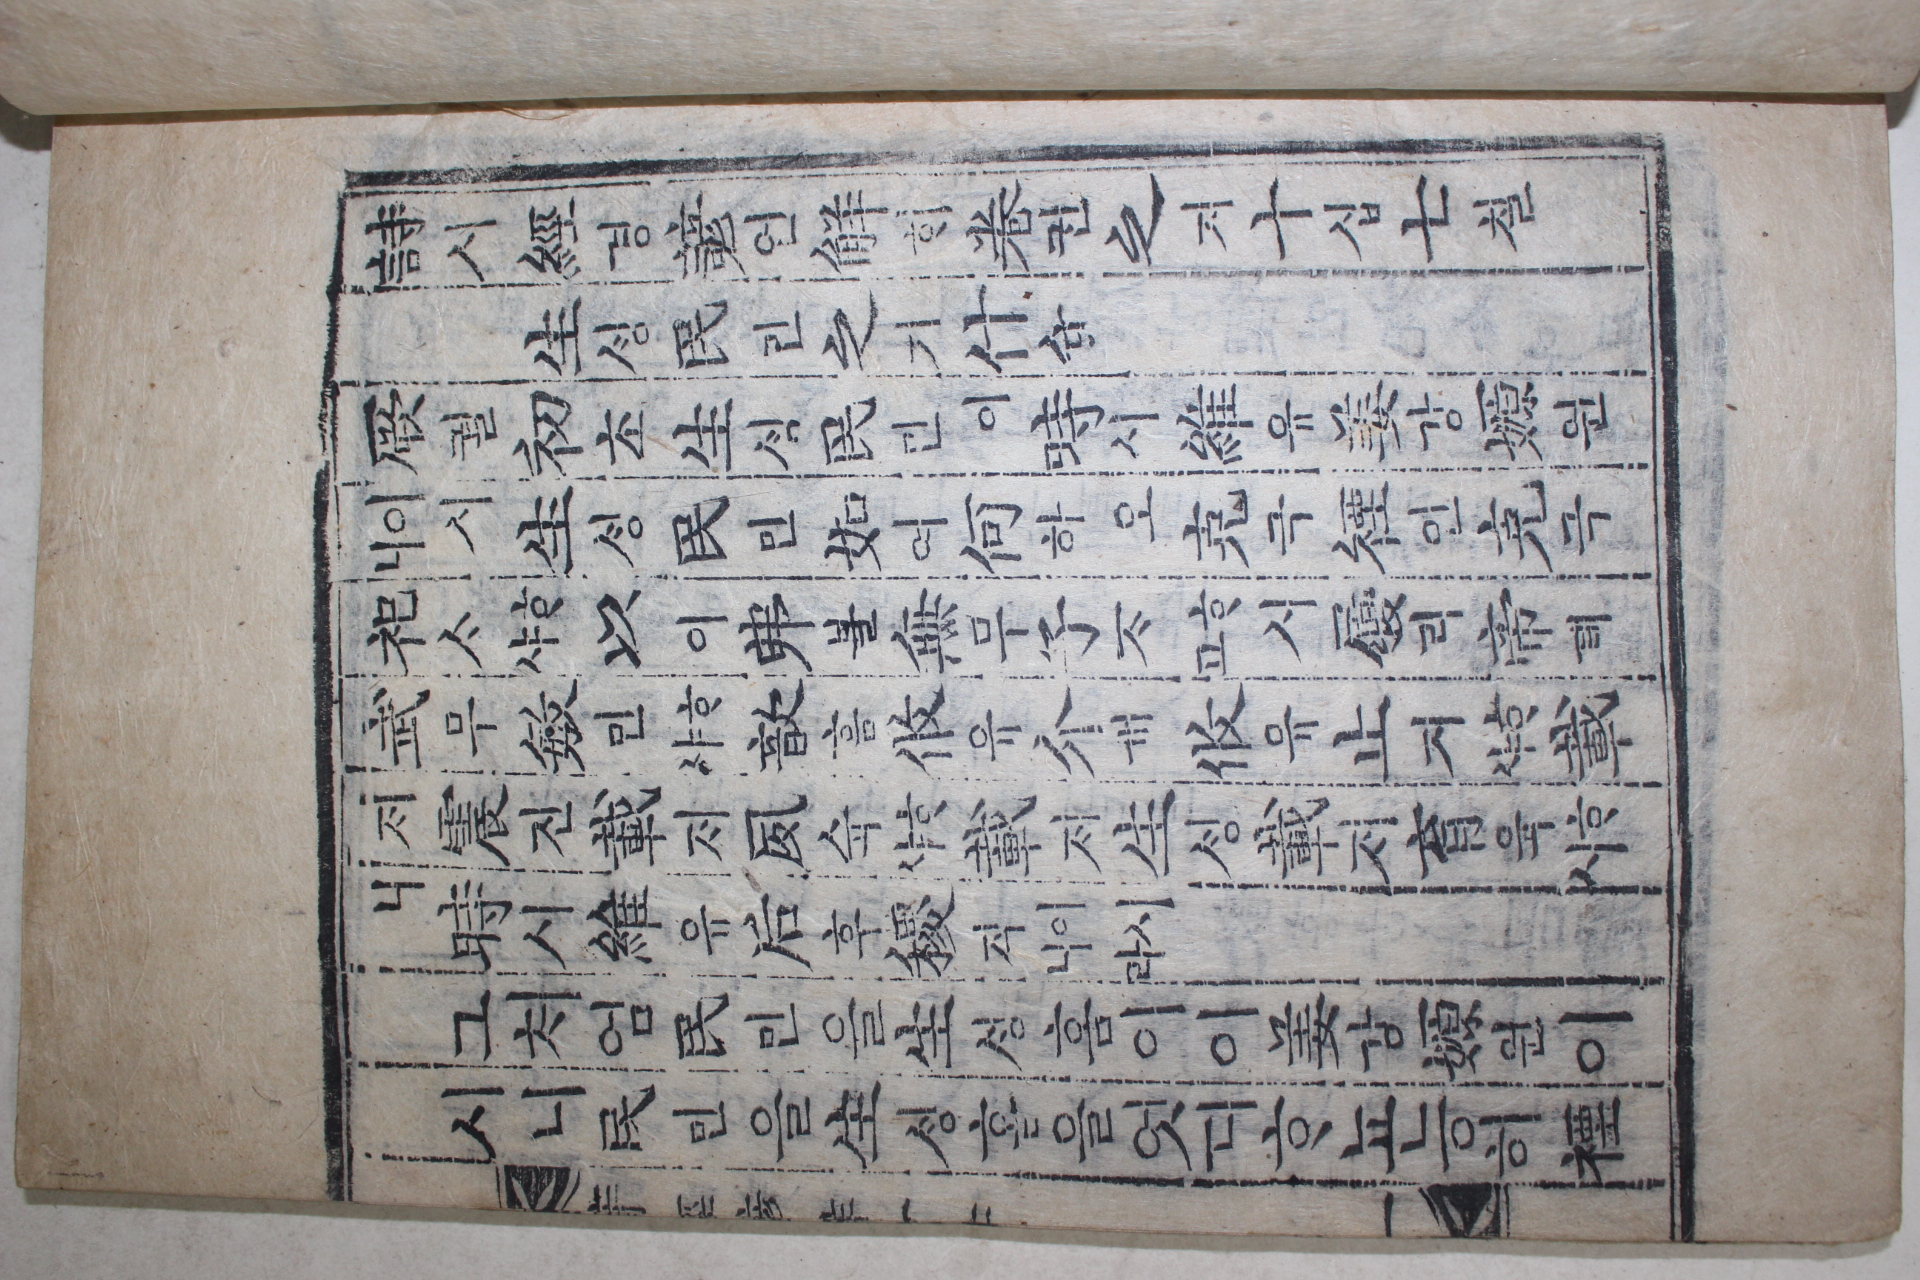 詩시經경諺언解ᄒᆡ卷권之지十십七칠
生ᄉᆡᆼ民민之지什습
厥궐初초生ᄉᆡᆼ民민이時시維유姜강嫄원
이시니生ᄉᆡᆼ民민如여何하오克극禋인克극
祀ᄉᆞᄒᆞ샤以이弗불無무子ᄌᆞᄒᆞ시고履리帝뎨
武무敏민ᄒᆞ샤歆흠攸유介개攸유止지ᄒᆞ샤載
ᄌᆡ震진載ᄌᆡ夙슉ᄒᆞ샤載ᄌᆡ生ᄉᆡᆼ載ᄌᆡ育육ᄒᆞ시
니時시維유后후稷직이시니라
그처엄民민을生ᄉᆡᆼ홈이이姜강嫄원이
시니民민을生ᄉᆡᆼ홈을엇디ᄒᆞ뇨능히禋